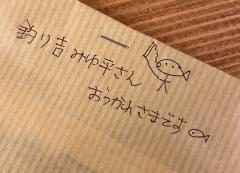 釣り吉みゆ平さん
おつかれさまです